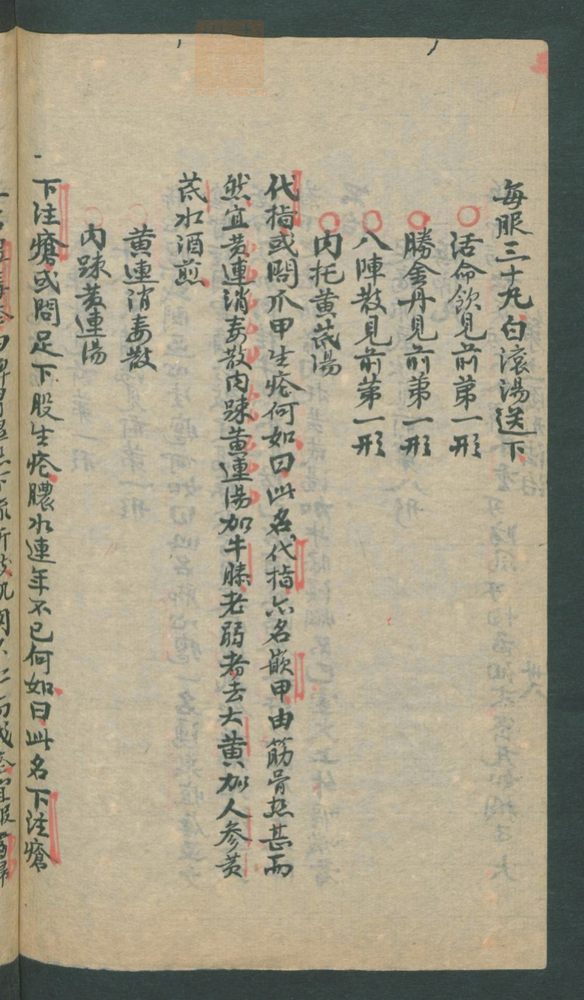 每服三十丸白滾湯送下
活命飲見前第一形
勝金丹見前第一形
八陣散見前第一形
內托黃芪湯
代指或問爪甲生疮何如曰此名代指亦名嵌甲由筋骨热甚而
然宜黄連消毒散内踈黄連湯加牛膝老弱者去大黄加人参黄
芪水酒煎
黄連消毒散
内踈黄連湯
下注瘡或問足下股生疮膿水連年不已何如曰此名下注瘡